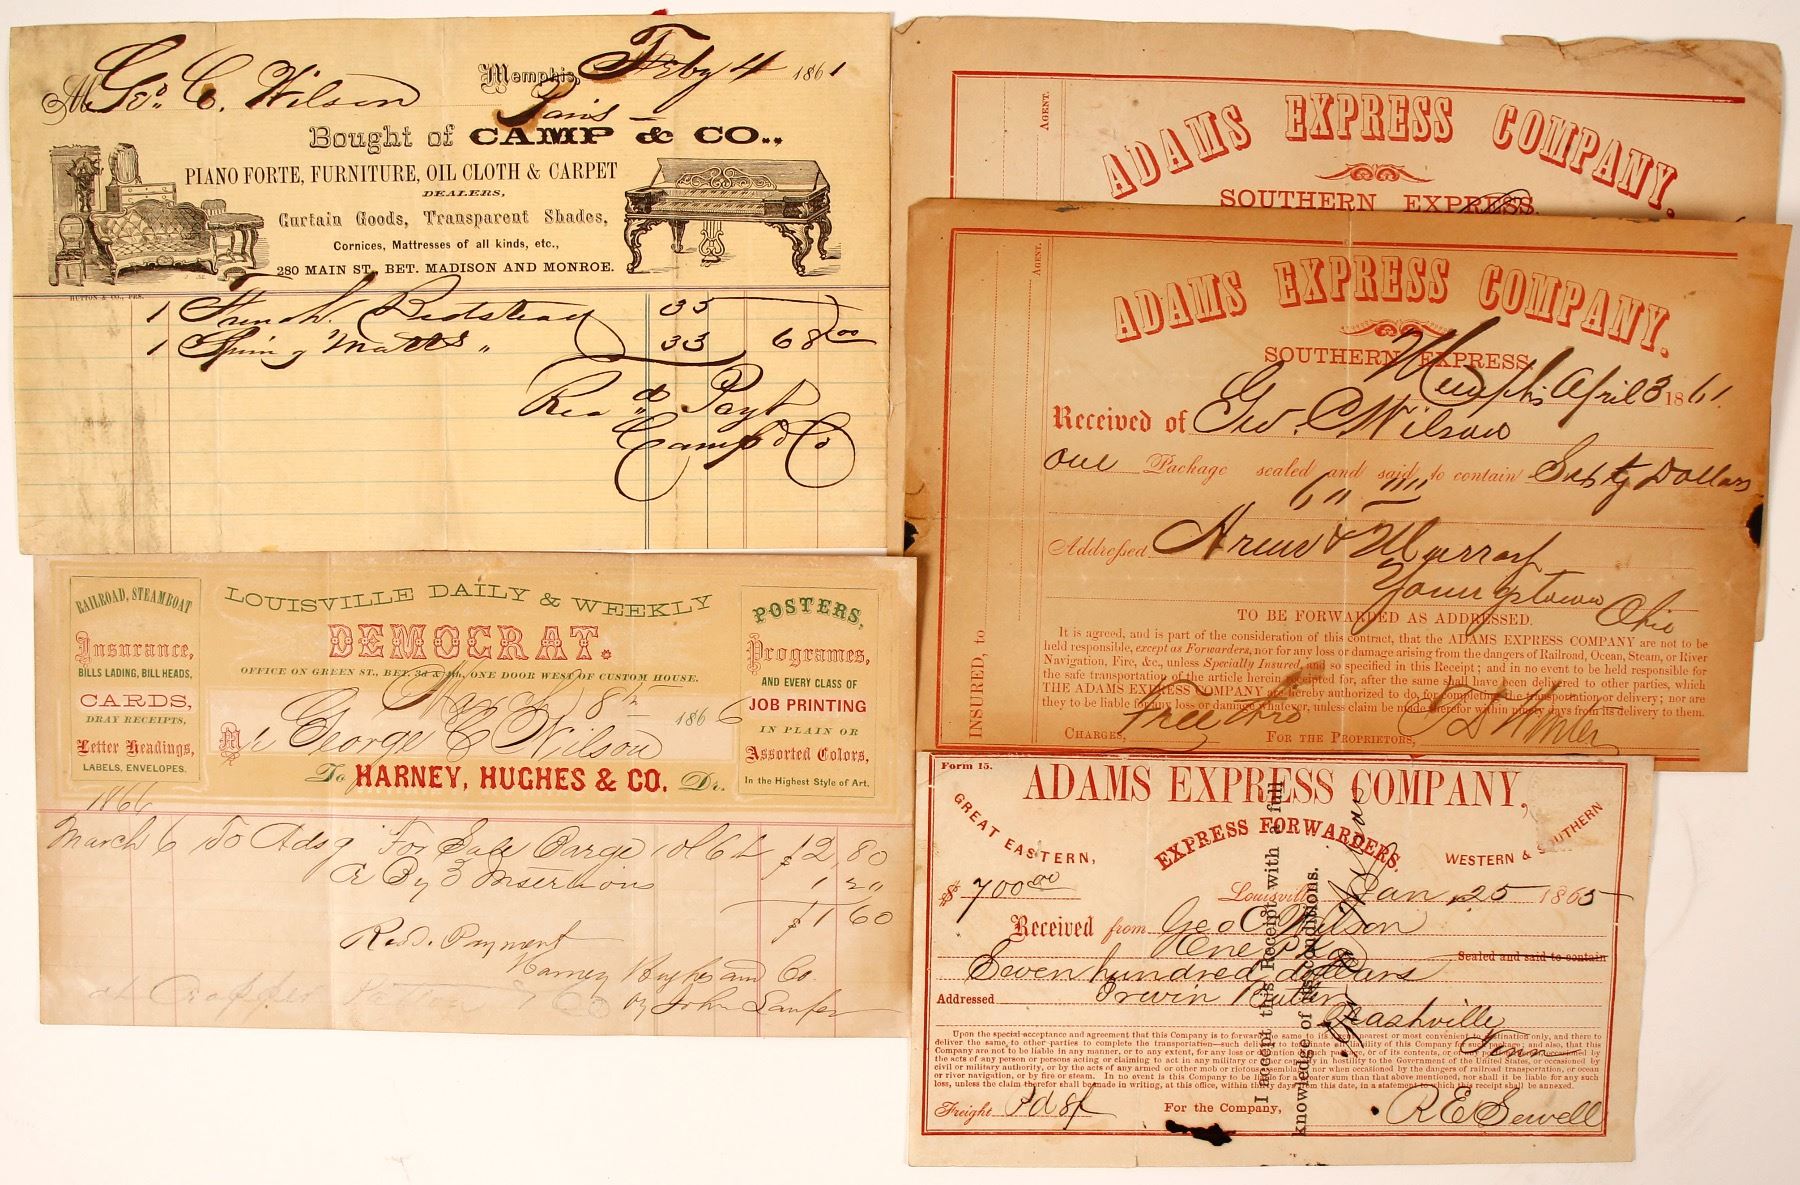 Memphis, Feby 4 1861
M Geo. C. Wilson
Bought of CAMP & CO.,
PIANO FORTE, FURNITURE, OIL CLOTH & CARPET
DEALERS,
Curtain Goods, Transparent Shades,
Cornices, Mattresses of all kinds, etc.,
280 MAIN ST., BET. MADISON AND MONROE.
HUTTON & CO., PRS.
1 French Bedstead 35
1 Spring Matts " 33 68 00
Rec'd Payt
Camp & Co
RAILROAD, STEAMBOAT
Insurance,
BILLS LADING, BILL HEADS,
CARDS,
DRAY RECEIPTS,
Letter Headings,
LABELS, ENVELOPES.
LOUISVILLE DAILY & WEEKLY
DEMOCRAT.
OFFICE ON GREEN ST., BET. 3d & 4th, ONE DOOR WEST OF CUSTOM HOUSE.
March 8th 1866
M George C Wilson
To HARNEY, HUGHES & CO. Dr.
POSTERS,
Programes,
AND EVERY CLASS OF
JOB PRINTING
IN PLAIN OR
Assorted Colors,
In the Highest Style of Art.
1866
March 6 To Adsg For Sale $2,80
Cr By 3 Insertions 1 2"
$1 60
Recd. Payment
Harney Hughes and Co.
by John
AGENT.
ADAMS EXPRESS COMPANY.
SOUTHERN EXPRESS.
AGENT.
INSURED, to
ADAMS EXPRESS COMPANY.
SOUTHERN EXPRESS.
Memphis April 3 1861.
Received of Geo. C. Wilson
one Package sealed and said to contain Sixty Dollars
Addressed & Murray
Youngstown
Ohio
TO BE FORWARDED AS ADDRESSED.
It is agreed, and is part of the consideration of this contract, that the ADAMS EXPRESS COMPANY are not to be
held responsible, except as Forwarders, nor for any loss or damage arising from the dangers of Railroad, Ocean, Steam, or River
Navigation, Fire, &c., unless Specially Insured, and so specified in this Receipt; and in no event to be held responsible for
the safe transportation of the article herein receipted for, after the same shall have been delivered to other parties, which
THE ADAMS EXPRESS COMPANY are hereby authorized to do, for completing the transportation or delivery; nor are
they to be liable for any loss or damage whatever, unless claim be made therefor within ninety days from its delivery to them.
CHARGES, Free
FOR THE PROPRIETORS,
Form 15.
ADAMS EXPRESS COMPANY,
GREAT EASTERN,
EXPRESS FORWARDERS.
WESTERN & SOUTHERN
$ 700 00 Louisville Jan 25 1865
Received from Geo C Wilson
One Pkg Sealed and said to contain
Seven hundred dollars
Addressed Irwin Butler
Nashville
Tenn
Upon the special acceptance and agreement that this Company is to forward the same to its nearest or most convenient destination only, and there to
deliver the same to other parties to complete the transportation—such delivery to terminate all liability of this Company for such package; and also, that this
Company are not to be liable in any manner, or to any extent, for any loss or detention of such package, or of its contents, or of any portion thereof occasioned by
the acts of any person or persons acting or claiming to act in any military or other capacity in hostility to the Government of the United States, or occasioned by
civil or military authority, or by the acts of any armed or other mob or riotous assemblage, nor when occasioned by the dangers of railroad transportation, or ocean
or river navigation, or by fire or steam. In no event is this Company to be liable for a greater sum than that above mentioned, nor shall it be liable for any such
loss, unless the claim therefor shall be made in writing, at this office, within thirty days from this date, in a statement to which this receipt shall be annexed.
Freight Pd For the Company, R E Sewell
I accept this Receipt with a full
knowledge of its conditions.